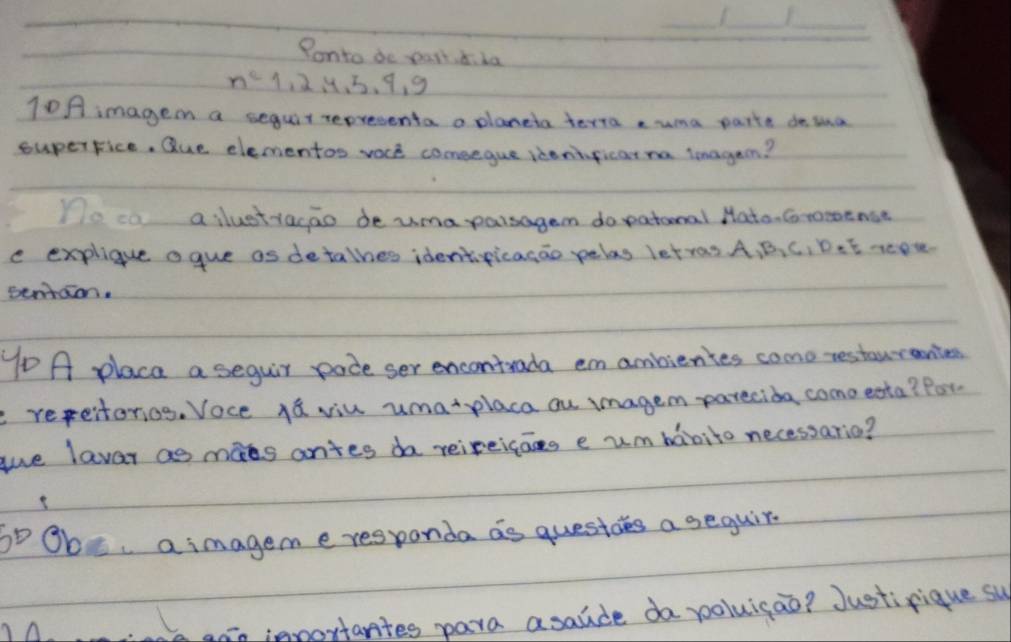 Ponto de
nº 1, 2, 4, 5, 7, 9
1º A imagem a seguir representa o planeta terra e uma parte de sua
superfice. Que elementos você comsegue identificar na imagem?
a ilustração de uma paisagem do patamal Mato-Grossense
e explique o que os detalhes identificação pelas letras A, B, C, D e E repre-
sentam.
4º A placa a seguir pode ser encontrada em ambientes como restaurantes
e refeitorios. Voce já viu uma placa ou imagem parecida como esta? Por-
que lavar as mãos antes da reifeições e um hábito necessario?
5º a imagem e responda ás questões a seguir.
são importantes para a saúde da poluição? Justifique su